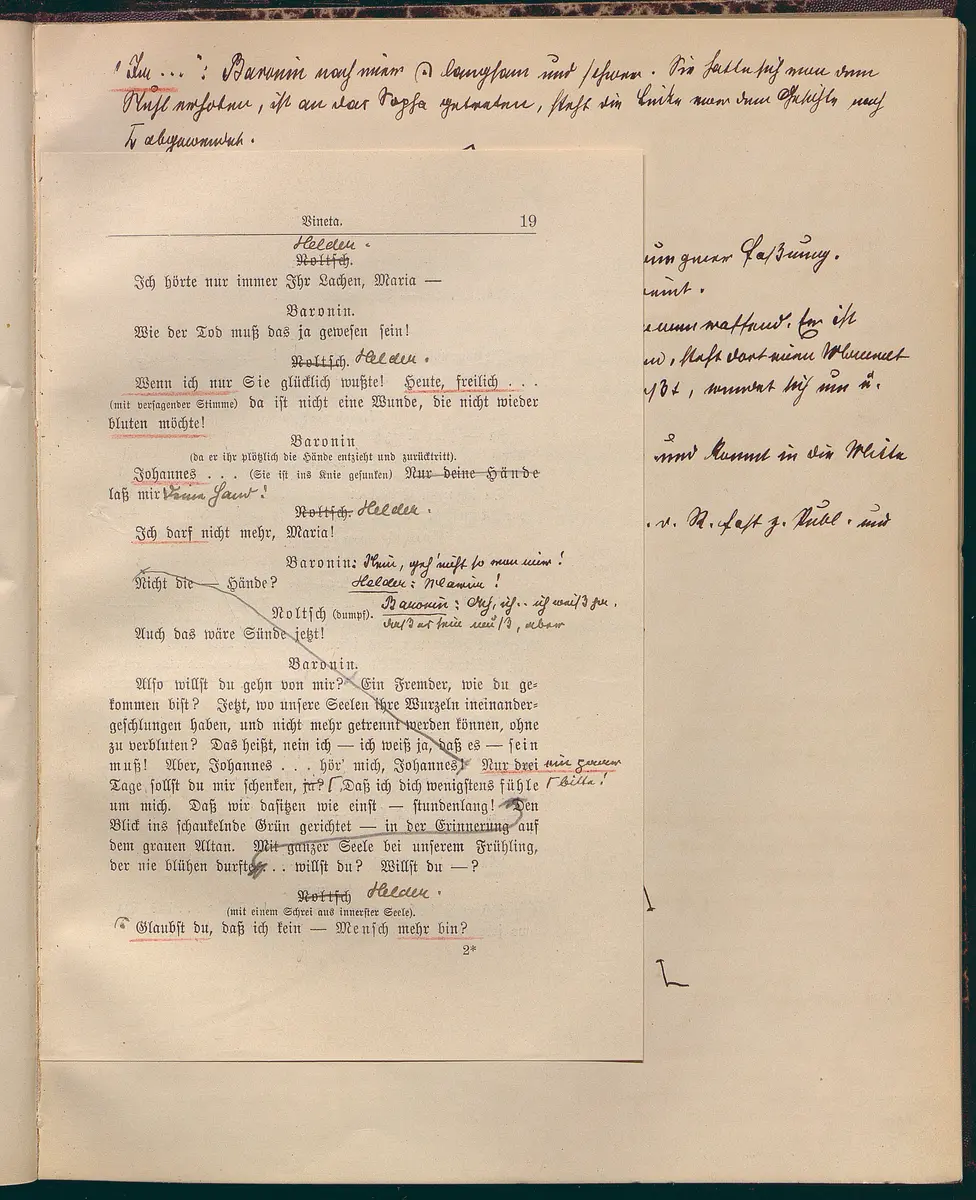 "Im ...": Baronin nach einer langsam und schwer. Sie hatte sich von dem
Stuhl erhoben, ist an das Sopha getreten, steht die Linke vor dem Gesichte nach
abgewendet.
Vineta. 19
Helden.
Noltsch.
Ich hörte nur immer Ihr Lachen, Maria —
Baronin.
Wie der Tod muß das ja gewesen sein!
Noltsch. Helden.
Wenn ich nur Sie glücklich wußte! Heute, freilich . . .
(mit versagender Stimme) da ist nicht eine Wunde, die nicht wieder
bluten möchte!
Baronin
(da er ihr plötzlich die Hände entzieht und zurücktritt).
Johannes . . . (Sie ist ins Knie gesunken) Nur deine Hände
laß mir deine Hand!
Noltsch. Helden.
Ich darf nicht mehr, Maria!
Baronin: Nein, geh' nicht so von mir!
Nicht die — Hände? Helden: Maria!
Noltsch (dumpf). Baronin: Ach, ich.. ich weiß ja,
daß es sein muß, aber
Auch das wäre Sünde jetzt!
Baronin.
Also willst du gehn von mir? Ein Fremder, wie du ge-
kommen bist? Jetzt, wo unsere Seelen ihre Wurzeln ineinander-
geschlungen haben, und nicht mehr getrennt werden können, ohne
zu verbluten? Das heißt, nein ich — ich weiß ja, daß es — sein
muß! Aber, Johannes . . . hör' mich, Johannes! Nur drei ein paar
Tage sollst du mir schenken, ja? Daß ich dich wenigstens fühle bitte!
um mich. Daß wir dasitzen wie einst — stundenlang! Den
Blick ins schaukelnde Grün gerichtet — in der Erinnerung auf
dem grauen Altan. Mit ganzer Seele bei unserem Frühling,
der nie blühen durfte . . . willst du? Willst du —?
Noltsch Helden.
(mit einem Schrei aus innerster Seele).
Glaubst du, daß ich kein — Mensch mehr bin?
2*
Faßung.
Er ist
steht dort einen Moment
wendet sich um u.
und kommt in die Mitte
v. R. fast z. Publ. und